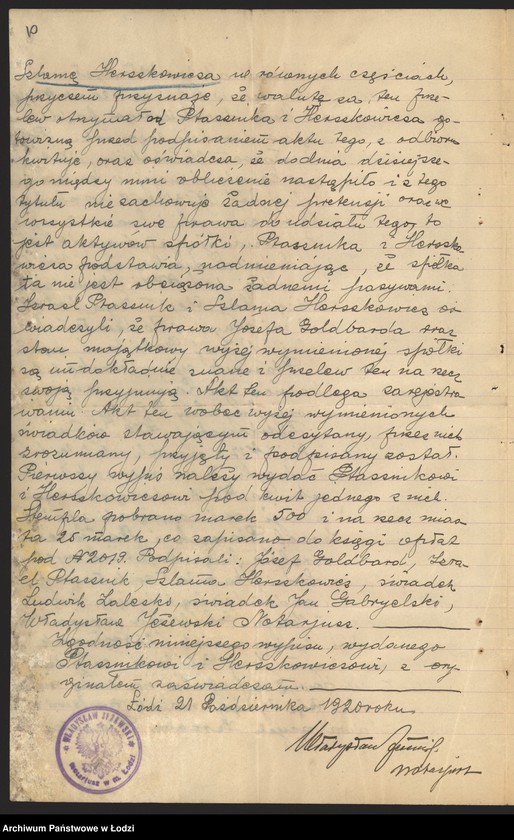 10
Szlamę Herszkowicza w równych częściach,
przyczem przyznaję, że walutę za ten prze-
lew otrzymał od Ptasznika i Herszkowicza go-
towizną przed podpisaniem aktu tego, z odbioru
kwituje, oraz oświadcza, że do dnia dzisiejsze-
go między nimi obliczenie nastąpiło i z tego
tytułu nie zachowuje żadnej pretensji oraz we
wszystkie swe prawa do udziału tego, to
jest aktywów spółki, Ptasznika i Herszko-
wicza podstawia, nadmieniając, że spółka
ta nie jest obciążona żadnemi pasywami.
Izrael Ptasznik i Szlama Herszkowicz oś-
wiadczyli, że prawa Józefa Goldbarda oraz
stan majątkowy wyżej wymienionej spółki
są im dokładnie znane i przelew ten na rzecz
swoją przyjmują. Akt ten podlega zarejestro-
waniu. Akt ten wobec wyżej wymienionych
świadków stawającym odczytany, przez nich
zrozumiany, przyjęty i podpisany został.
Pierwszy wypis należy wydać Ptasznikowi
i Herszkowiczowi pod kwit jednego z nich.
Stempla pobrano marek 500 i na rzecz mias-
ta 25 marek, co zapisano do księgi opłat
pod № 2019. Podpisali: Józef Goldbard, Izra-
el Ptasznik, Szlama Herszkowicz, świadek
Ludwik Zaleski, świadek Jan Gabryelski,
Władysław Jeżewski Notarjusz.
Zgodność niniejszego wypisu, wydanego
Ptasznikowi i Herszkowiczowi, z ory-
ginałem zaświadczam.
Łódź 21 Października 1920 roku.
Władysław Jeżewski
Notarjusz
WŁADYSŁAW JEŻEWSKI
Notarjusz w m. Łodzi
Archiwum Państwowe w Łodzi